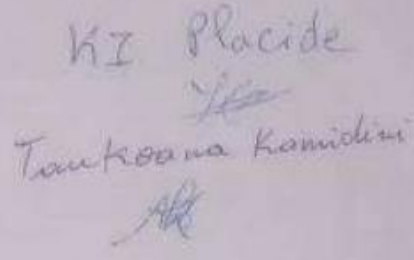 KI Placide
Tankoana Kamidini